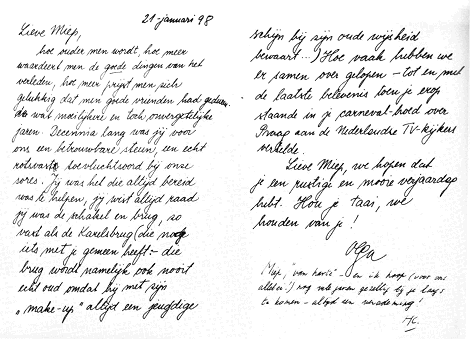 21-januari 98
Lieve Miep,
hoe ouder men wordt, hoe meer
waardeert men de goede dingen van het
verleden, hoe meer prijst men zich
gelukkig dat men goede vrienden had gedurende
wat moeilijkere en toch onvergetelijke
jaren. Decennia lang was jij voor
ons een betrouwbare steun, een echt
rotsvaste toevluchtsoord bij onze
sores. Jij was het die altijd bereid
was te helpen, jij wist altijd raad
jij was de schakel en brug, zo
vast als de Karelsbrug (die nog
iets met je gemeen heeft:- die
brug wordt namelijk ook nooit
echt oud omdat hij met zijn
"make-up" altijd een jeugdige
schijn bij zijn oude wijsheid
bewaart...) Hoe vaak hebben we
er samen over gelopen – tot en met
de laatste belevenis toen je ergens
staande in je carnaval-hoed over
Praag aan de Nederlandse TV-kijkers
vertelde.
Lieve Miep, we hopen dat
je een rustige en mooie verjaardag
hebt. Hou je taai, we
houden van je!
Olga
Miep, "van harte" – en ik hoop (voor ons
allebei!) nog vele jaren gezellig bij je langs
te komen – altijd een verademing!
HC.